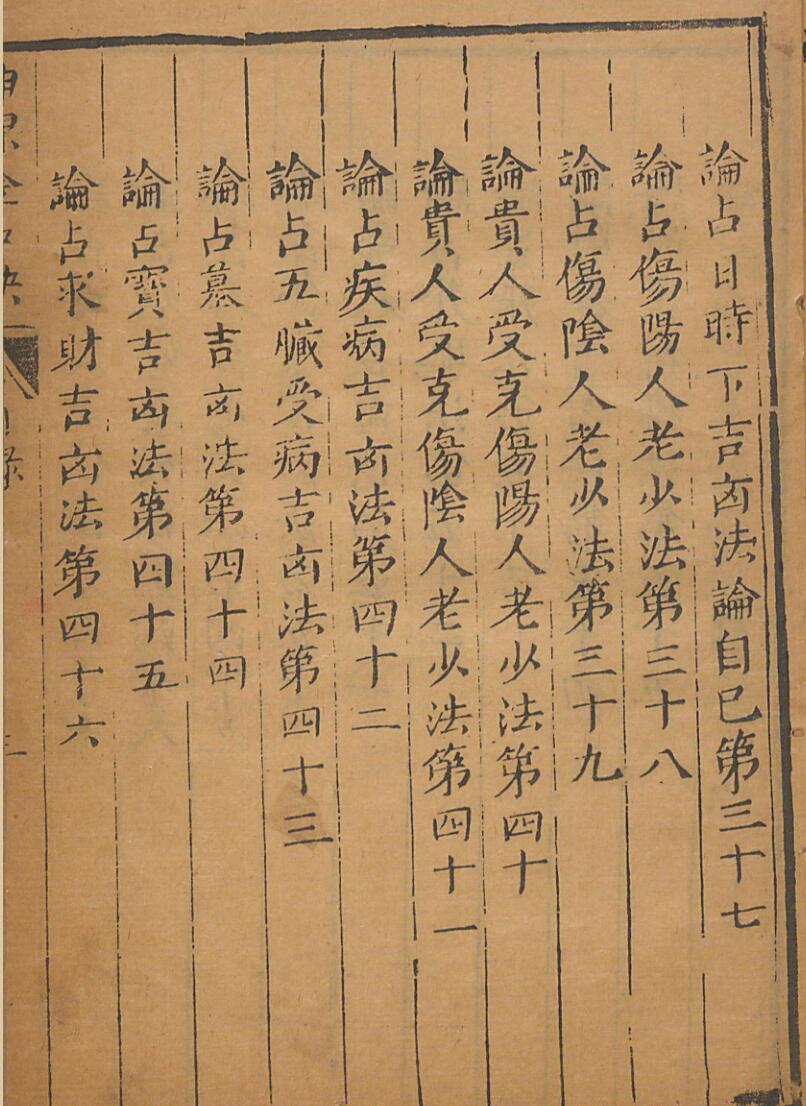 論占日時下吉凶法論自己第三十七
論占傷陽人老少法第三十八
論占傷陰人老少法第三十九
論貴人受克傷陽人老少法第四十
論貴人受克傷陰人老少法第四十一
論占疾病吉凶法第四十二
論占五臟受病吉凶法第四十三
論占墓吉凶法第四十四
論占寶吉凶法第四十五
論占求財吉凶法第四十六